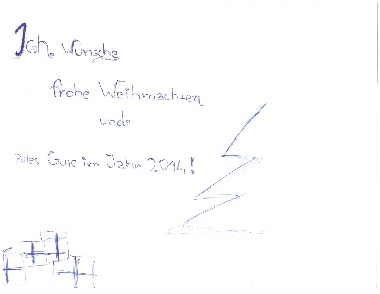 Ich wünsche
frohe Weihnachten
und
alles Gute im Jahr 2014!